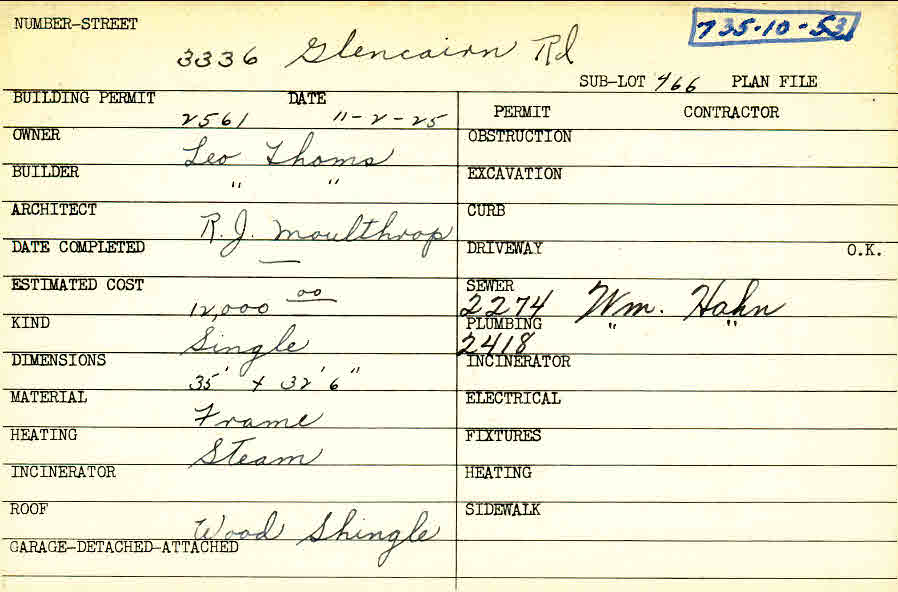 NUMBER-STREET 735-10-53
3336 Glencairn Rd
SUB-LOT 466 PLAN FILE
BUILDING PERMIT DATE PERMIT CONTRACTOR
2561 11-2-25
OWNER OBSTRUCTION
Leo Thoms
BUILDER EXCAVATION
" "
ARCHITECT CURB
R. J. Moulthrop
DATE COMPLETED DRIVEWAY O.K.
—
ESTIMATED COST SEWER
12,000 00 2274 Wm. Hahn
KIND PLUMBING " "
Single 2418
DIMENSIONS INCINERATOR
35' x 32' 6"
MATERIAL ELECTRICAL
Frame
HEATING FIXTURES
Steam
INCINERATOR HEATING
ROOF SIDEWALK
Wood Shingle
GARAGE-DETACHED-ATTACHED